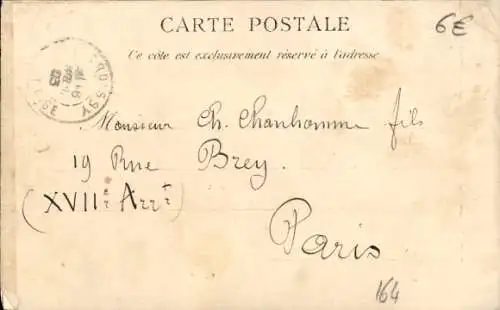 CARTE POSTALE
6€
Ce côté est exclusivement réservé à l'adresse
Monsieur Ch. Chanhomme fils
19 Rue Brey.
(XVIIe Arrt)
Paris
164